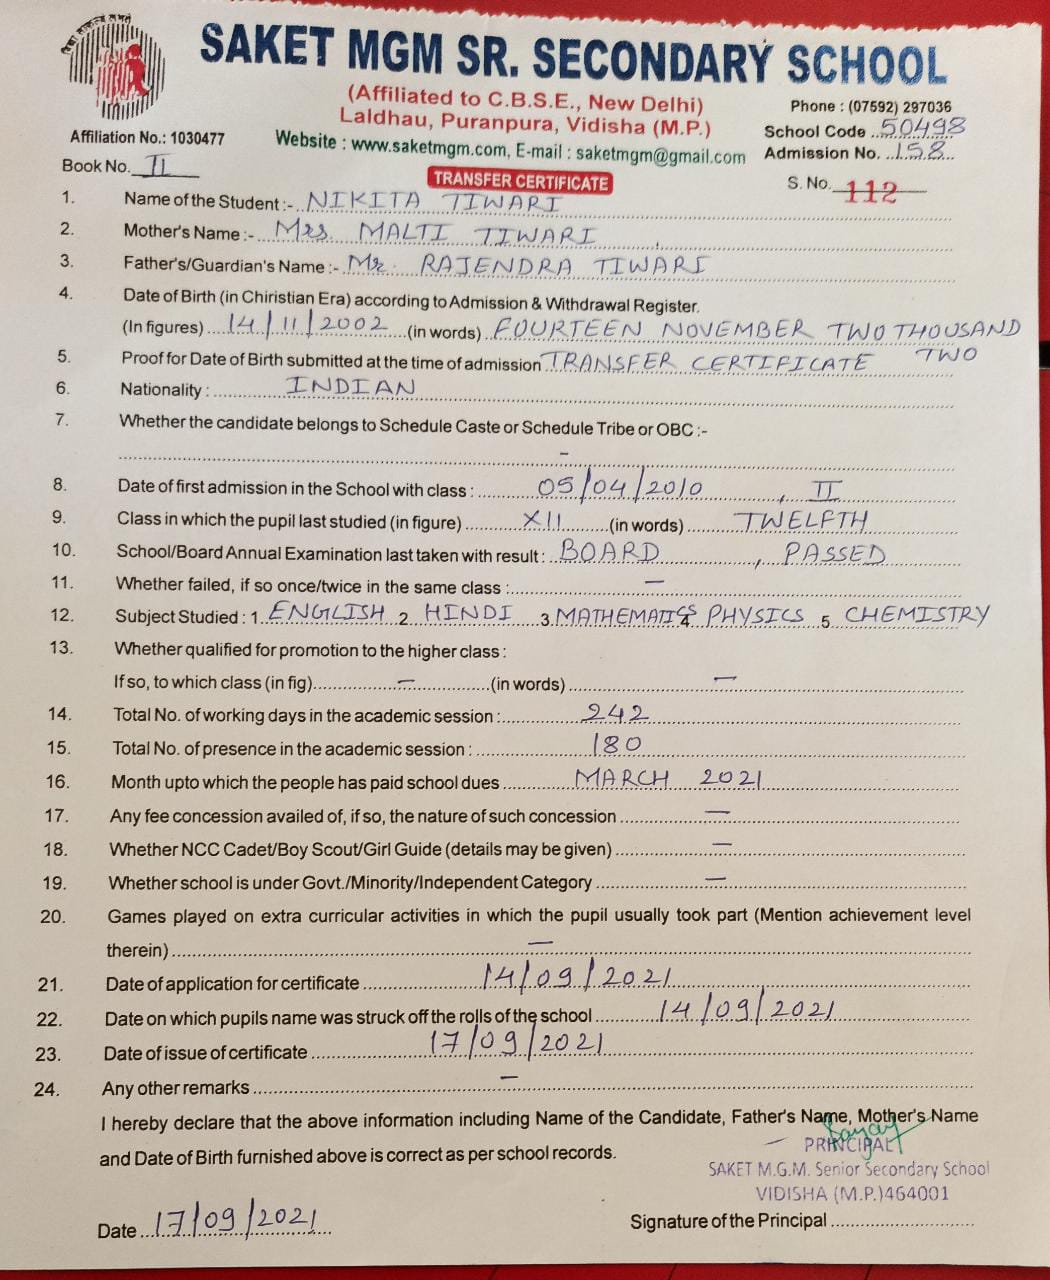 SAKET MGM SR. SECONDARY SCHOOL
(Affiliated to C.B.S.E., New Delhi)
Laldhau, Puranpura, Vidisha (M.P.)
Website : www.saketmgm.com, E-mail : saketmgm@gmail.com
Phone : (07592) 297036
School Code 50498
Admission No. 158
Affiliation No.: 1030477
Book No. II
TRANSFER CERTIFICATE
S. No. 112
1. Name of the Student :- NIKITA TIWARI
2. Mother's Name :- Mrs. MALTI TIWARI
3. Father's/Guardian's Name :- Mr. RAJENDRA TIWARI
4. Date of Birth (in Chiristian Era) according to Admission & Withdrawal Register.
(In figures) 14/11/2002 (in words) FOURTEEN NOVEMBER TWO THOUSAND
TWO
5. Proof for Date of Birth submitted at the time of admission TRANSFER CERTIFICATE
6. Nationality : INDIAN
7. Whether the candidate belongs to Schedule Caste or Schedule Tribe or OBC :-
–
8. Date of first admission in the School with class : 05/04/2010 , II
9. Class in which the pupil last studied (in figure) XII (in words) TWELFTH
10. School/Board Annual Examination last taken with result : BOARD , PASSED
11. Whether failed, if so once/twice in the same class : –
12. Subject Studied : 1. ENGLISH 2. HINDI 3. MATHEMATICS 4. PHYSICS 5. CHEMISTRY
13. Whether qualified for promotion to the higher class :
If so, to which class (in fig) – (in words) –
14. Total No. of working days in the academic session : 242
15. Total No. of presence in the academic session : 180
16. Month upto which the people has paid school dues MARCH 2021
17. Any fee concession availed of, if so, the nature of such concession –
18. Whether NCC Cadet/Boy Scout/Girl Guide (details may be given) –
19. Whether school is under Govt./Minority/Independent Category –
20. Games played on extra curricular activities in which the pupil usually took part (Mention achievement level
therein) –
21. Date of application for certificate 14/09/2021
22. Date on which pupils name was struck off the rolls of the school 14/09/2021
23. Date of issue of certificate 17/09/2021
24. Any other remarks –
I hereby declare that the above information including Name of the Candidate, Father's Name, Mother's Name
and Date of Birth furnished above is correct as per school records.
PRINCIPAL
SAKET M.G.M. Senior Secondary School
VIDISHA (M.P.)464001
Date 17/09/2021
Signature of the Principal